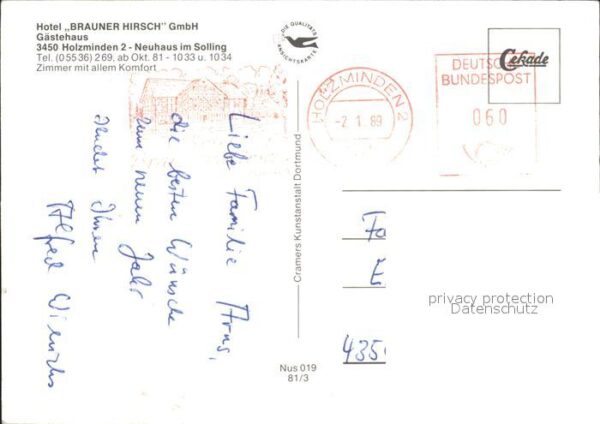 Hotel „BRAUNER HIRSCH" GmbH
Gästehaus
3450 Holzminden 2 - Neuhaus im Solling
Tel. (05536) 269, ab Okt. 81 - 1033 u. 1034
Zimmer mit allem Komfort
DIE QUALITÄTS
ANSICHTSKARTE
HOLZMINDEN 2
-2. 1. 89
DEUTSCHE
BUNDESPOST
060
Cekade
Liebe Familie
die besten Wünsche
zum neuen Jahr
sendet Ihnen
Alfred
Cramers Kunstanstalt Dortmund
Nus 019
81/3
Fa
435
privacy protection
Datenschutz